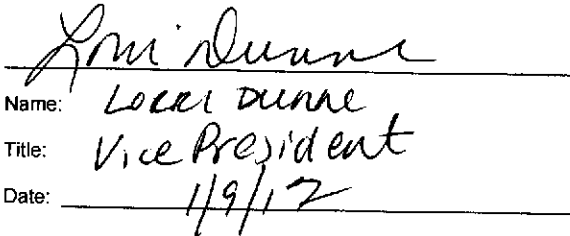 Lorri Dunne
Name: Lorri Dunne
Title: Vice President
Date: 1/9/12